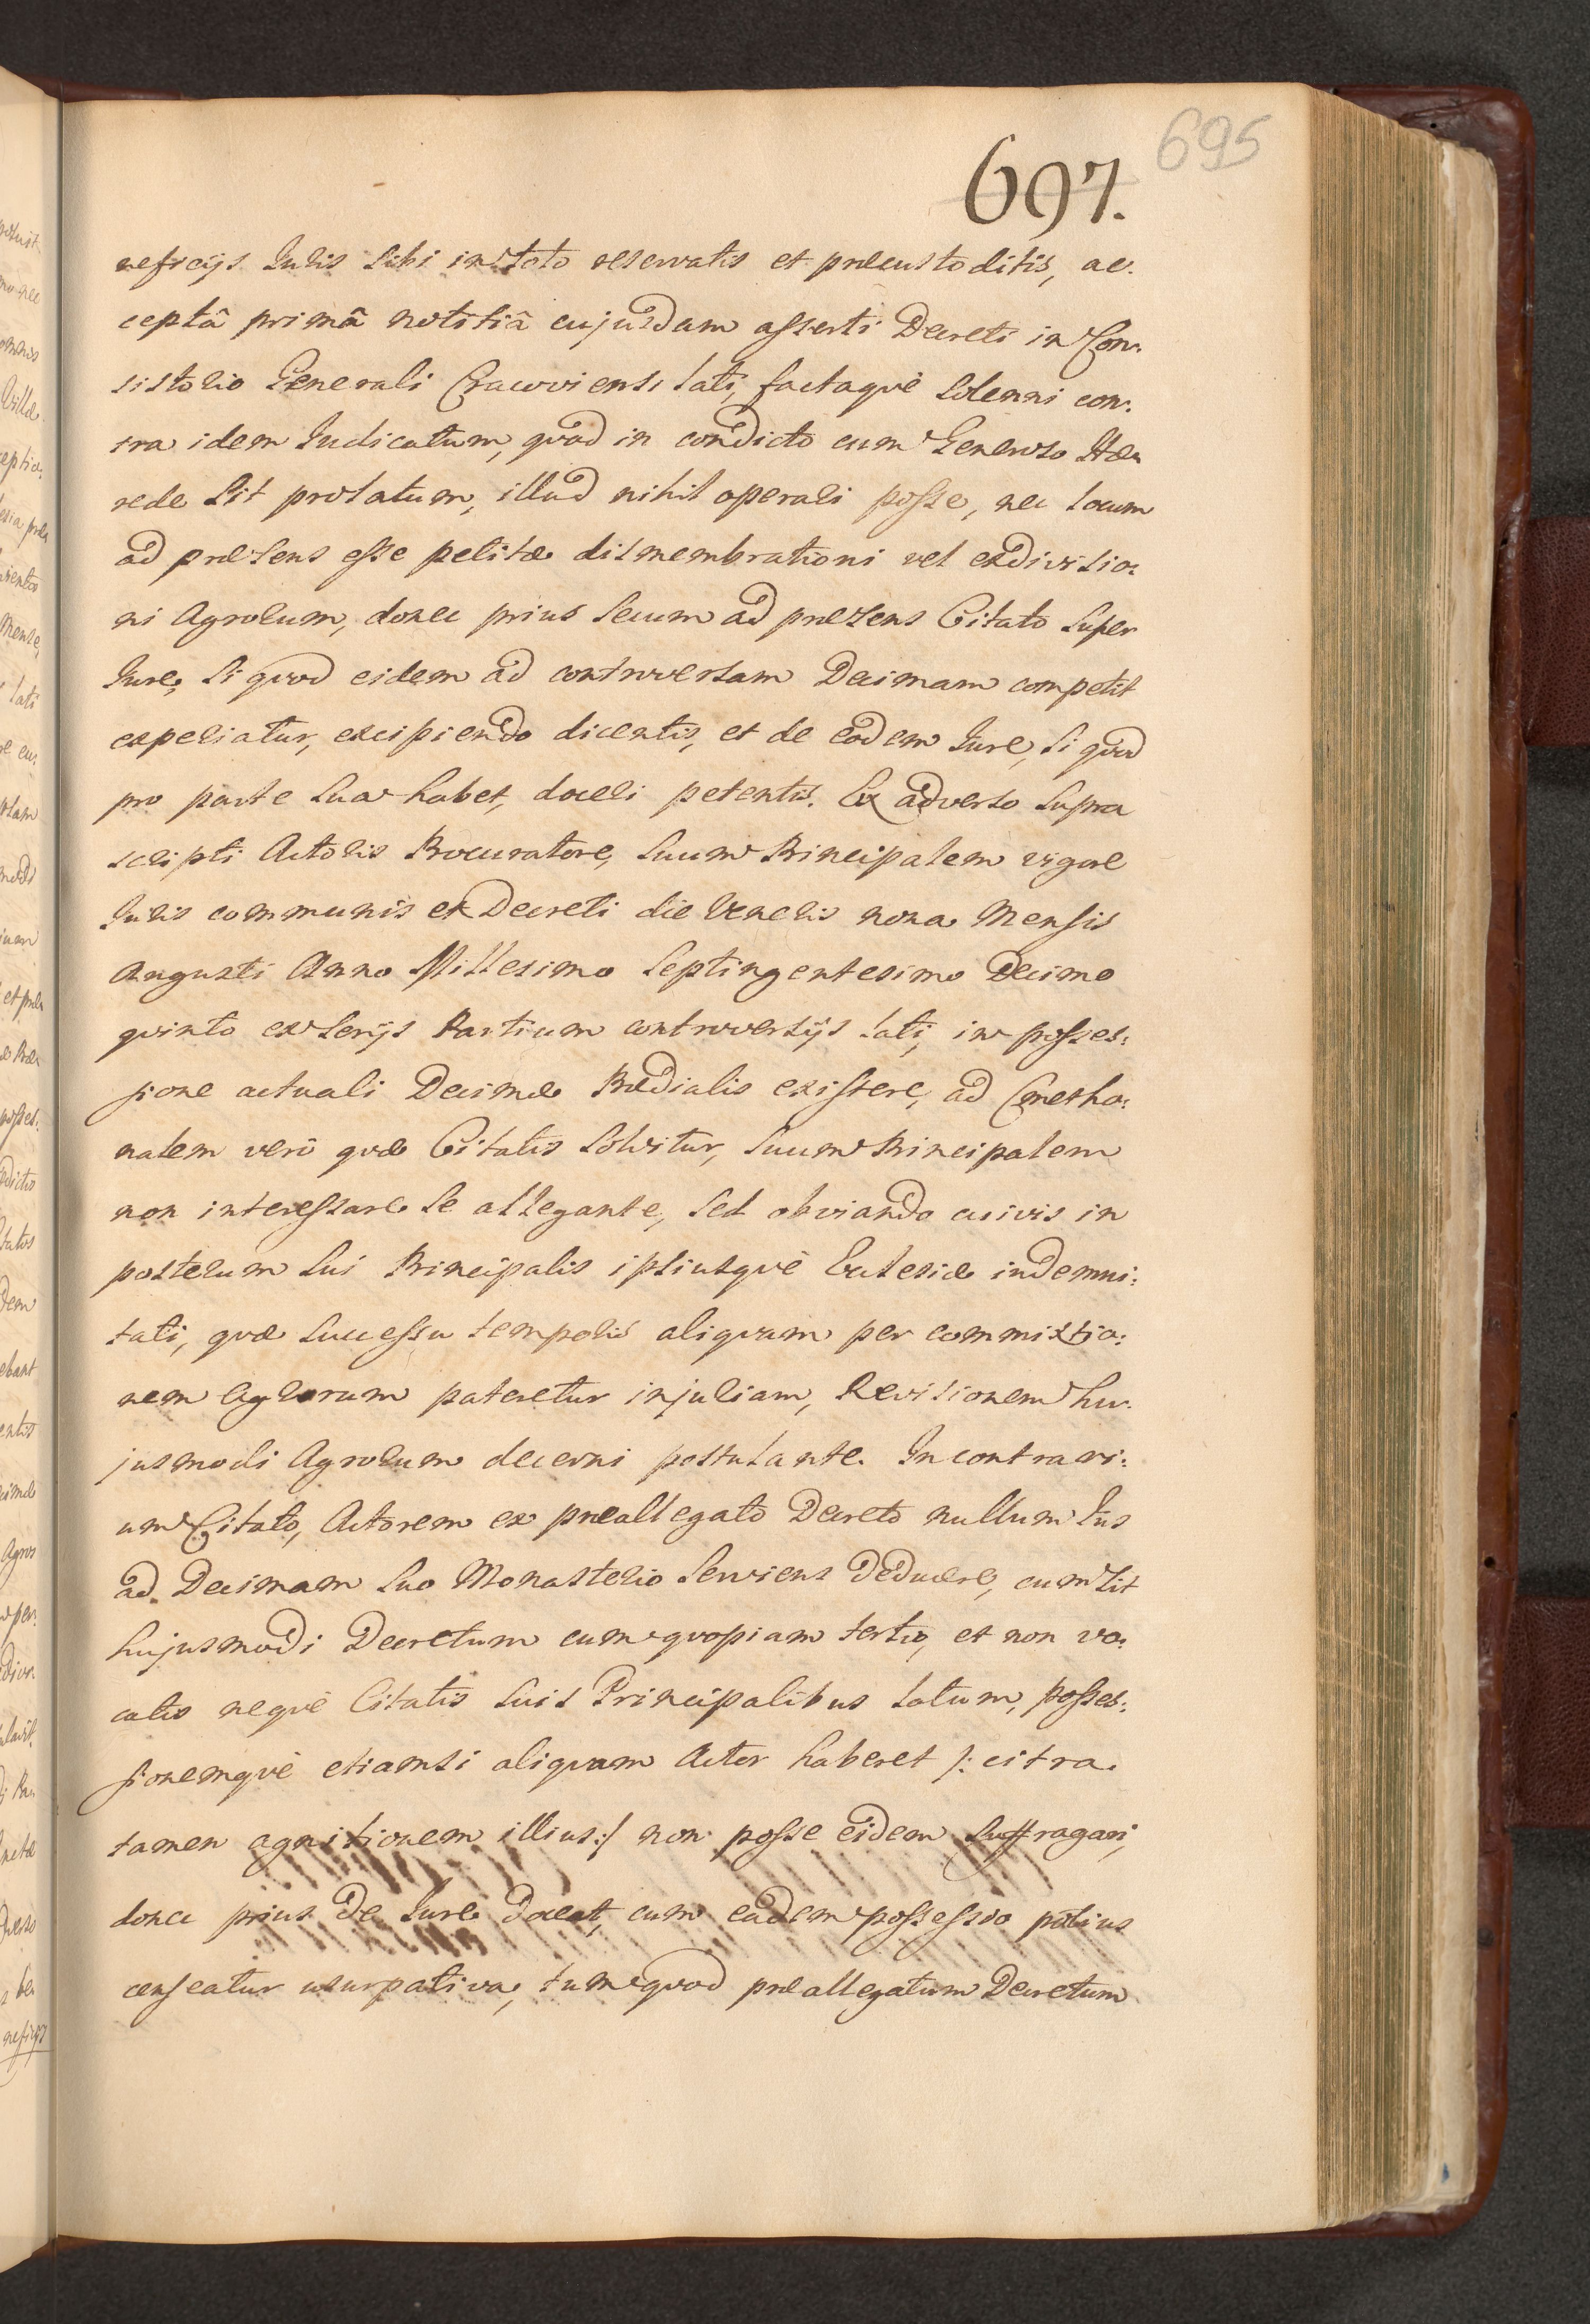 695
697.
neficijs Juris sibi in toto reservatis et præcustoditis, ac:
ceptâ primâ notitiâ cujusdam asserti Decreti in Con:
sistorio Generali Cracoviensi lati, factaquè solenni con:
tra idem Judicatum, quod in condicto cum Generoso Hæ:
rede sit prolatum, illud nihil operari posse, nec locum
ad præsens esse petitæ dismembrationi vel exdivisio:
ni Agrorum, donec prius secum ad præsens Citato super
Jure, si quod eidem ad controversam Decimam competit
experiatur, excipiendo dicentis, et de eodem Jure, si quod
pro parte sua habet, doceri petentis. Ex adverso supra
scripti Actoris Procuratore, suum Principalem vigore
Juris communis et Decreti die Veneris nona Mensis
Augusti Anno Millesimo Septingentesimo Decimo
quinto ex serijs Partium controversijs lati, in posses:
sione actuali Decimæ Prædialis existere, ad Cmetho:
nalem verò quæ Citatis solvitur, suum Principalem
non interessare se allegante, sed obviando cuivis in
posterum sui Principalis ipsiusquè Ecclesiæ indemni:
tati, quæ successu temporis aliquam per commixtio:
nem Agrorum pateretur injuriam, Revisionem hu:
jusmodi Agrorum decerni postulante. In contrari:
um Citato, Actorem ex præallegato Decreto nullum Jus
ad Decimam suo Monasterio serviens deducere, cum sit
hujusmodi Decretum cum quopiam tertio, et non vo:
catis nequè Citatis suis Principalibus latum, posses:
sionemquè etiamsi aliquam Actor haberet /: citra
tamen agnitionem illius :/ non posse eidem suffragari,
donec prius de Jure doceat, cum eadem possessio potius
censeatur usurpativa, tum quod præallegatum Decretum